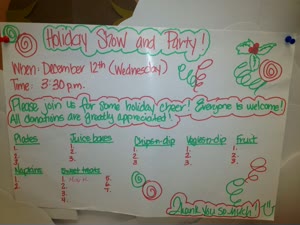 Holiday Show and Party!
When: December 12th (Wednesday)
Time: 3:30 p.m.
Please join us for some holiday cheer! Everyone is welcome!
All donations are greatly appreciated!
Plates
1.
2.
3.
Juice boxes
1.
2.
3.
Chips-n-dip
1.
2.
3.
Vegies-n-dip
1.
2.
3.
Fruit
1.
2.
3.
Napkins
1.
2.
Sweet treats
1.
2.
3.
4.
5.
6.
7.
Thank you so much!